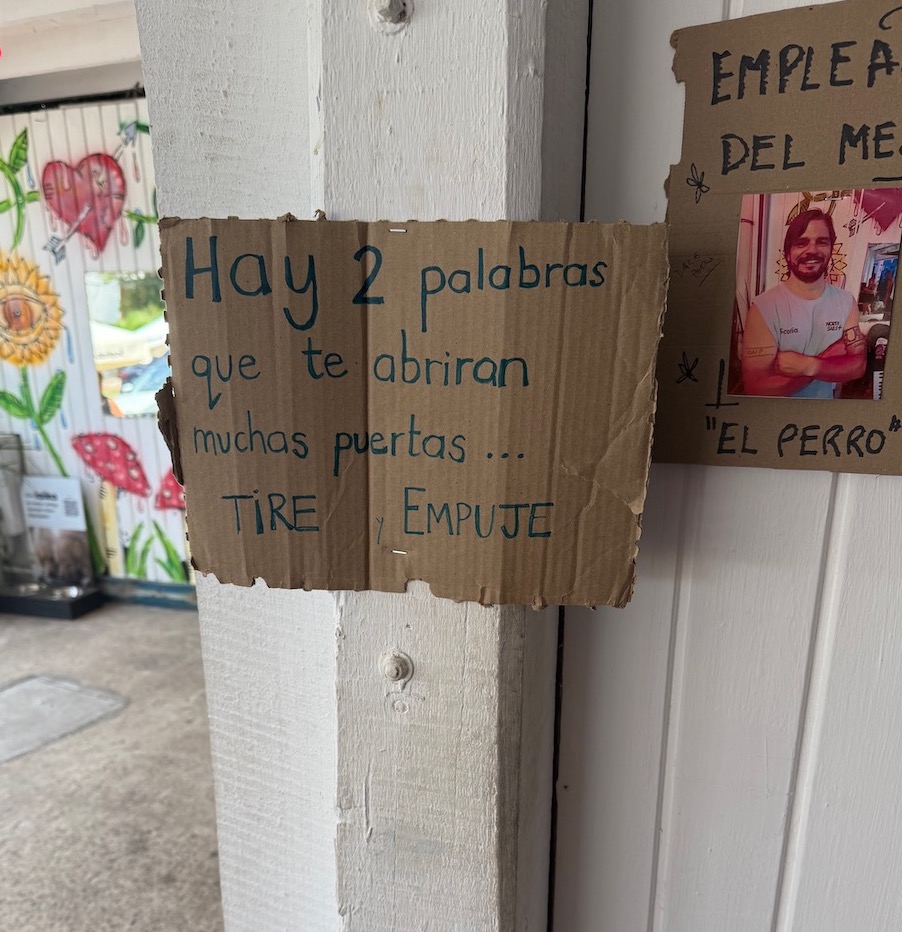 Hay 2 palabras
que te abriran
muchas puertas ...
TiRE y EMPUJE
EMPLEA
DEL ME
"EL PERRO"